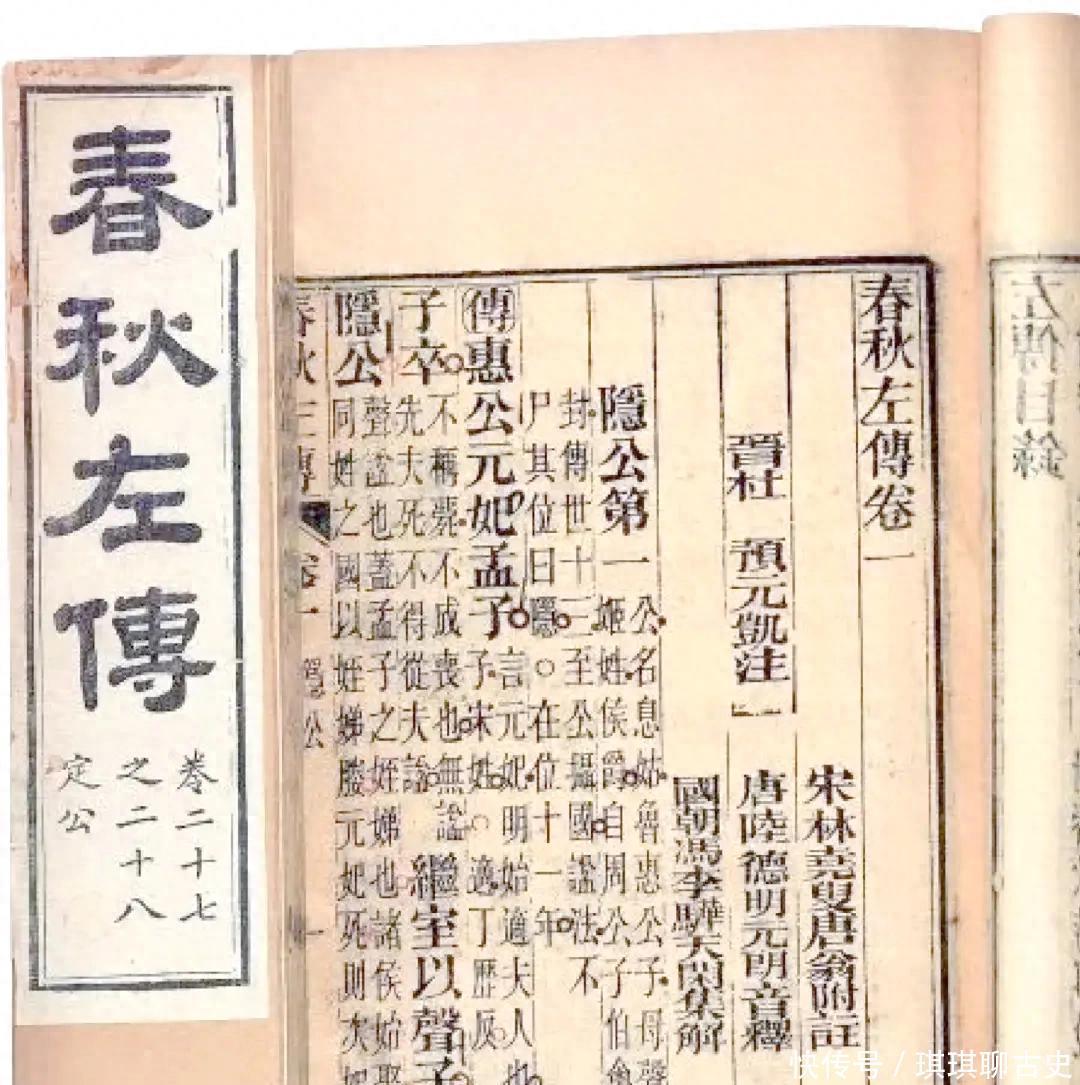 春秋左傳
卷二十七
之二十八
定公
左傳目錄
春秋左傳卷一
宋林堯叟唐翁附註
晉杜 預元凱注
唐陸德明元朗音釋
國朝馮李驊天閑集解
隱公第一
公名息姑魯惠公子母聲
姬姓侯爵自周公子伯禽
封傳世十三至公攝國諡法不
尸其位曰隱○在位十一年
傳惠公元妃孟子
言元妃明始適夫人也
子宋姓○適丁歷反
子卒
不稱薨不成喪也無諡
先夫死不得從夫諡
繼室以聲子
隱公
聲諡也蓋孟子之姪娣也諸侯始娶
同姓之國以姪娣媵元妃死則次妃
春秋左傳 卷一 隱公 一
快传号/琪琪聊古史